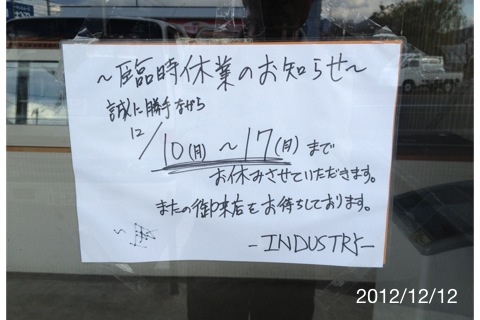 ～臨時休業のお知らせ～
誠に勝手ながら
12/10(月)～17(月)まで
お休みさせていただきます。
またの御来店をお待ちしております。
-INDUSTRY-
2012/12/12